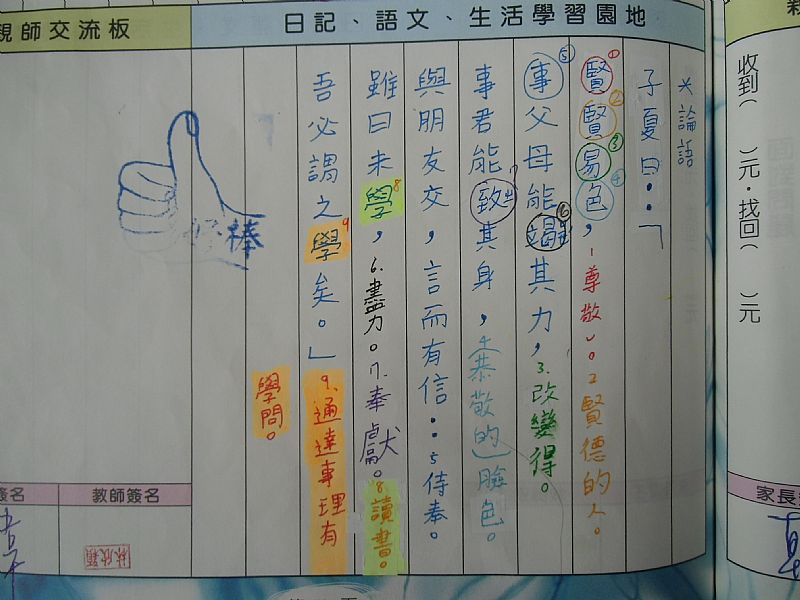 日記、語文、生活學習園地
親師交流板
※論語
子夏曰：「
①賢②賢③易④色，1尊敬。2賢德的人。
⑤事父母能⑥竭其力，3.改變得。
事君能⑦致其身，4(恭敬的)臉色。
與朋友交，言而有信：5侍奉。
雖曰未學8，6.盡力。7.奉獻。8.讀書。
吾必謂之學9矣。」9.通達事理有
學問。
好棒
教師簽名
簽名
收到(　　)元，找回(　　)元
家長